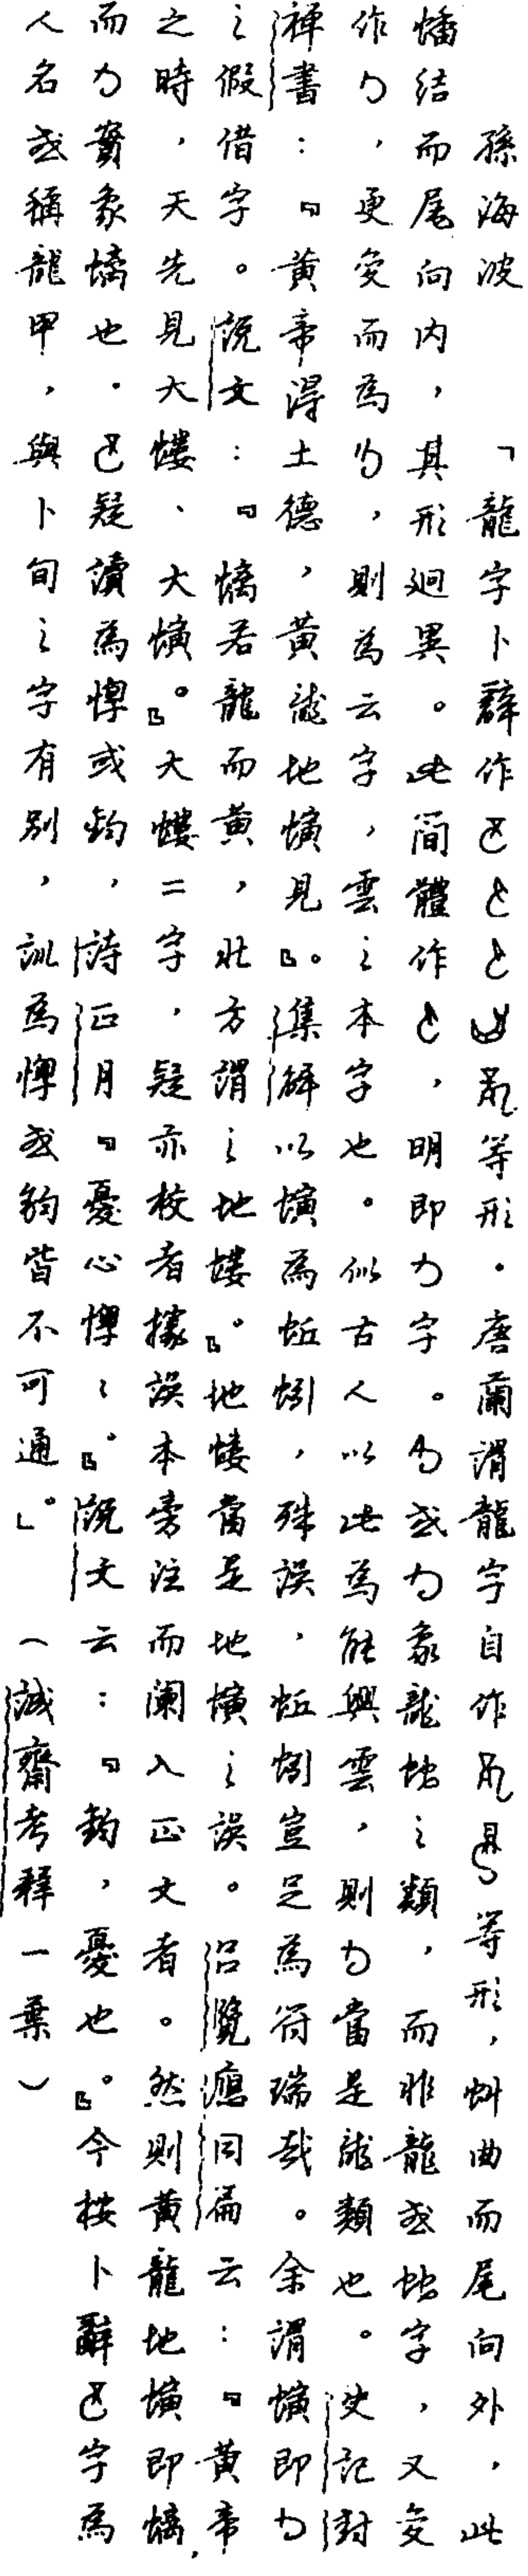 孫海波　「龍字卜辭作等形．唐蘭謂龍字自作等形，蚪曲而尾向外，此
蟠結而尾向內，其形迥異。此簡體作，明即字。或象龍蛇之類，而非龍或蛇字，又变
作，更变而為，則為云字，雲之本字也。似古人以此為能興雲，則當是龍類也。史記封
禅書：『黄帝得土德，黄龍地螾見』。集解以螾為蚯蚓，殊誤，蚯蚓豈足為符瑞哉。余謂螾即
之假借字。説文：『螭若龍而黄，北方謂之地螻』。地螻當是地螾之誤。吕覽應同篇云：『黄帝
之時，天先見大螻、大螾』。大螻二字，疑亦校者據誤本旁注而闌入正文者。然則黄龍地螾即螭，
而實象螭也．疑讀為惸或䪷，詩正月『憂心惸惸』。説文云：『，憂也』。今按卜辭字為
人名或稱龍甲，與卜旬之字有别，訓為惸或皆不可通」。（誠齋考释一葉）